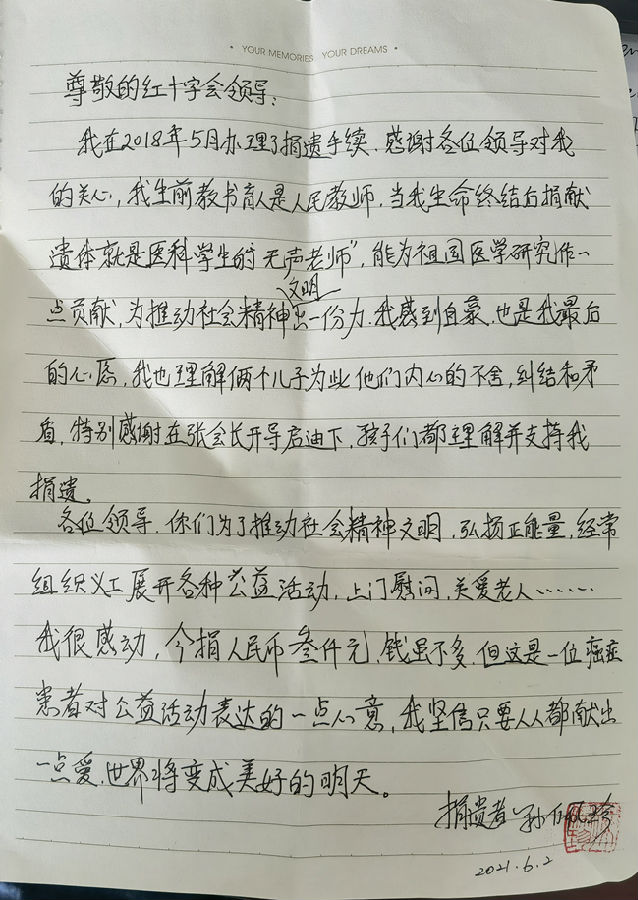 • YOUR MEMORIES YOUR DREAMS •
尊敬的红十字会领导：
我在2018年5月办理了捐遗手续.感谢各位领导对我
的关心,我生前教书育人是人民教师,当我生命终结后捐献
遗体就是医科学生的"无声老师",能为祖国医学研究作一
点贡献,为推动社会精神文明出一份力.我感到自豪.也是我最后
的心愿,我也理解俩个儿子为此他们内心的不舍,纠结和矛
盾,特别感谢在张会长开导启迪下,孩子们都理解并支持我
捐遗。
各位领导.你们为了推动社会精神文明,弘扬正能量,经常
组织义工展开各种公益活动,上门慰问,关爱老人……
我很感动,今捐人民币叁仟元,钱虽不多,但这是一位癌症
患者对公益活动表达的一点心意,我坚信只要人人都献出
一点爱.世界将变成美好的明天。
捐遗者 孙
2021.6.2